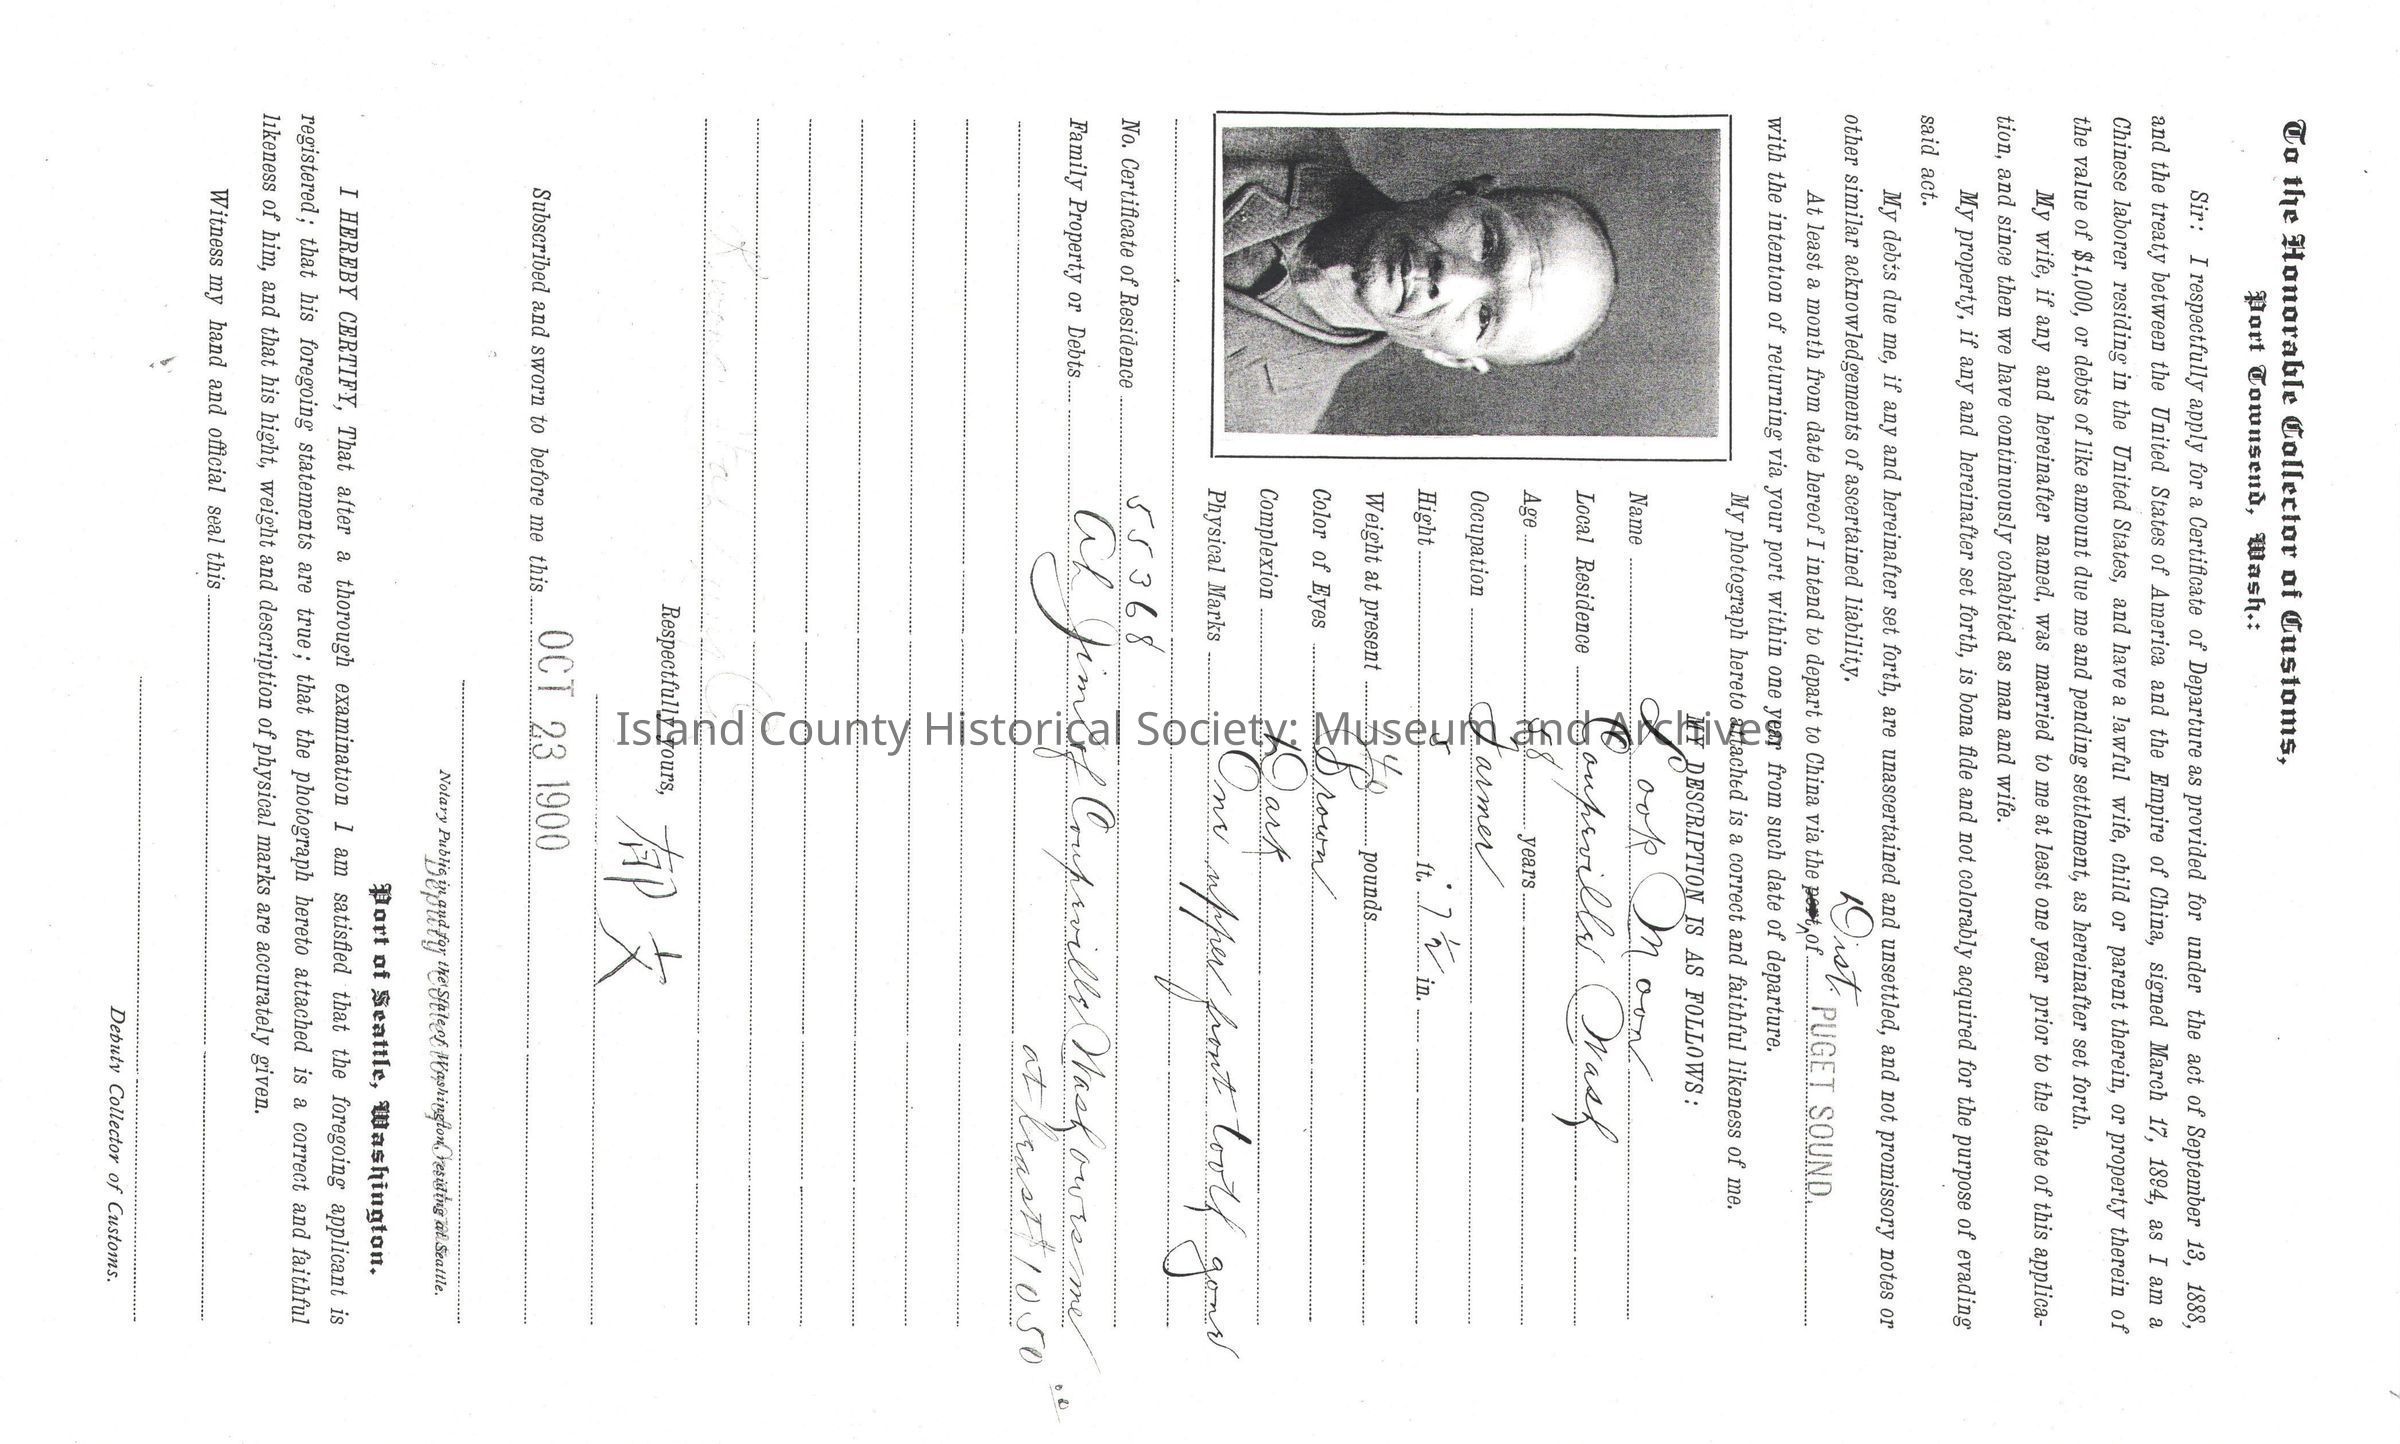 To the Honorable Collector of Customs,
Port Townsend, Wash.:
Sir: I respectfully apply for a Certificate of Departure as provided for under the act of September 13, 1888,
and the treaty between the United States of America and the Empire of China, signed March 17, 1894, as I am a
Chinese laborer residing in the United States, and have a lawful wife, child or parent therein, or property therein of
the value of $1,000, or debts of like amount due me and pending settlement, as hereinafter set forth.
My wife, if any and hereinafter named, was married to me at least one year prior to the date of this applica-
tion, and since then we have continuously cohabited as man and wife.
My property, if any and hereinafter set forth, is bona fide and not colorably acquired for the purpose of evading
said act.
My debts due me, if any and hereinafter set forth, are unascertained and unsettled, and not promissory notes or
other similar acknowledgements of ascertained liability.
At least a month from date hereof I intend to depart to China via the port, Dist. of PUGET SOUND.
with the intention of returning via your port within one year from such date of departure.
My photograph hereto attached is a correct and faithful likeness of me.
MY DESCRIPTION IS AS FOLLOWS:
Name Look Moon
Local Residence Coupville Wash
Age 58 years
Occupation Farmer
Hight 5 ft. 7 1/2 in.
Weight at present 140 pounds
Color of Eyes Brown
Complexion Dark
Physical Marks One upper front tooth gone
No. Certificate of Residence 55368
Family Property or Debts Ah Jim of Coupville Wash owes me
at least $1050 00
Respectfully yours,
Subscribed and sworn to before me this OCT 23 1900
Notary Public in and for the State of Washington, residing at Seattle.
Deputy Collector
Port of Seattle, Washington.
I HEREBY CERTIFY, That after a thorough examination I am satisfied that the foregoing applicant is
registered; that his foregoing statements are true; that the photograph hereto attached is a correct and faithful
likeness of him, and that his hight, weight and description of physical marks are accurately given.
Witness my hand and official seal this
Deputy Collector of Customs.
Island County Historical Society: Museum and Archives